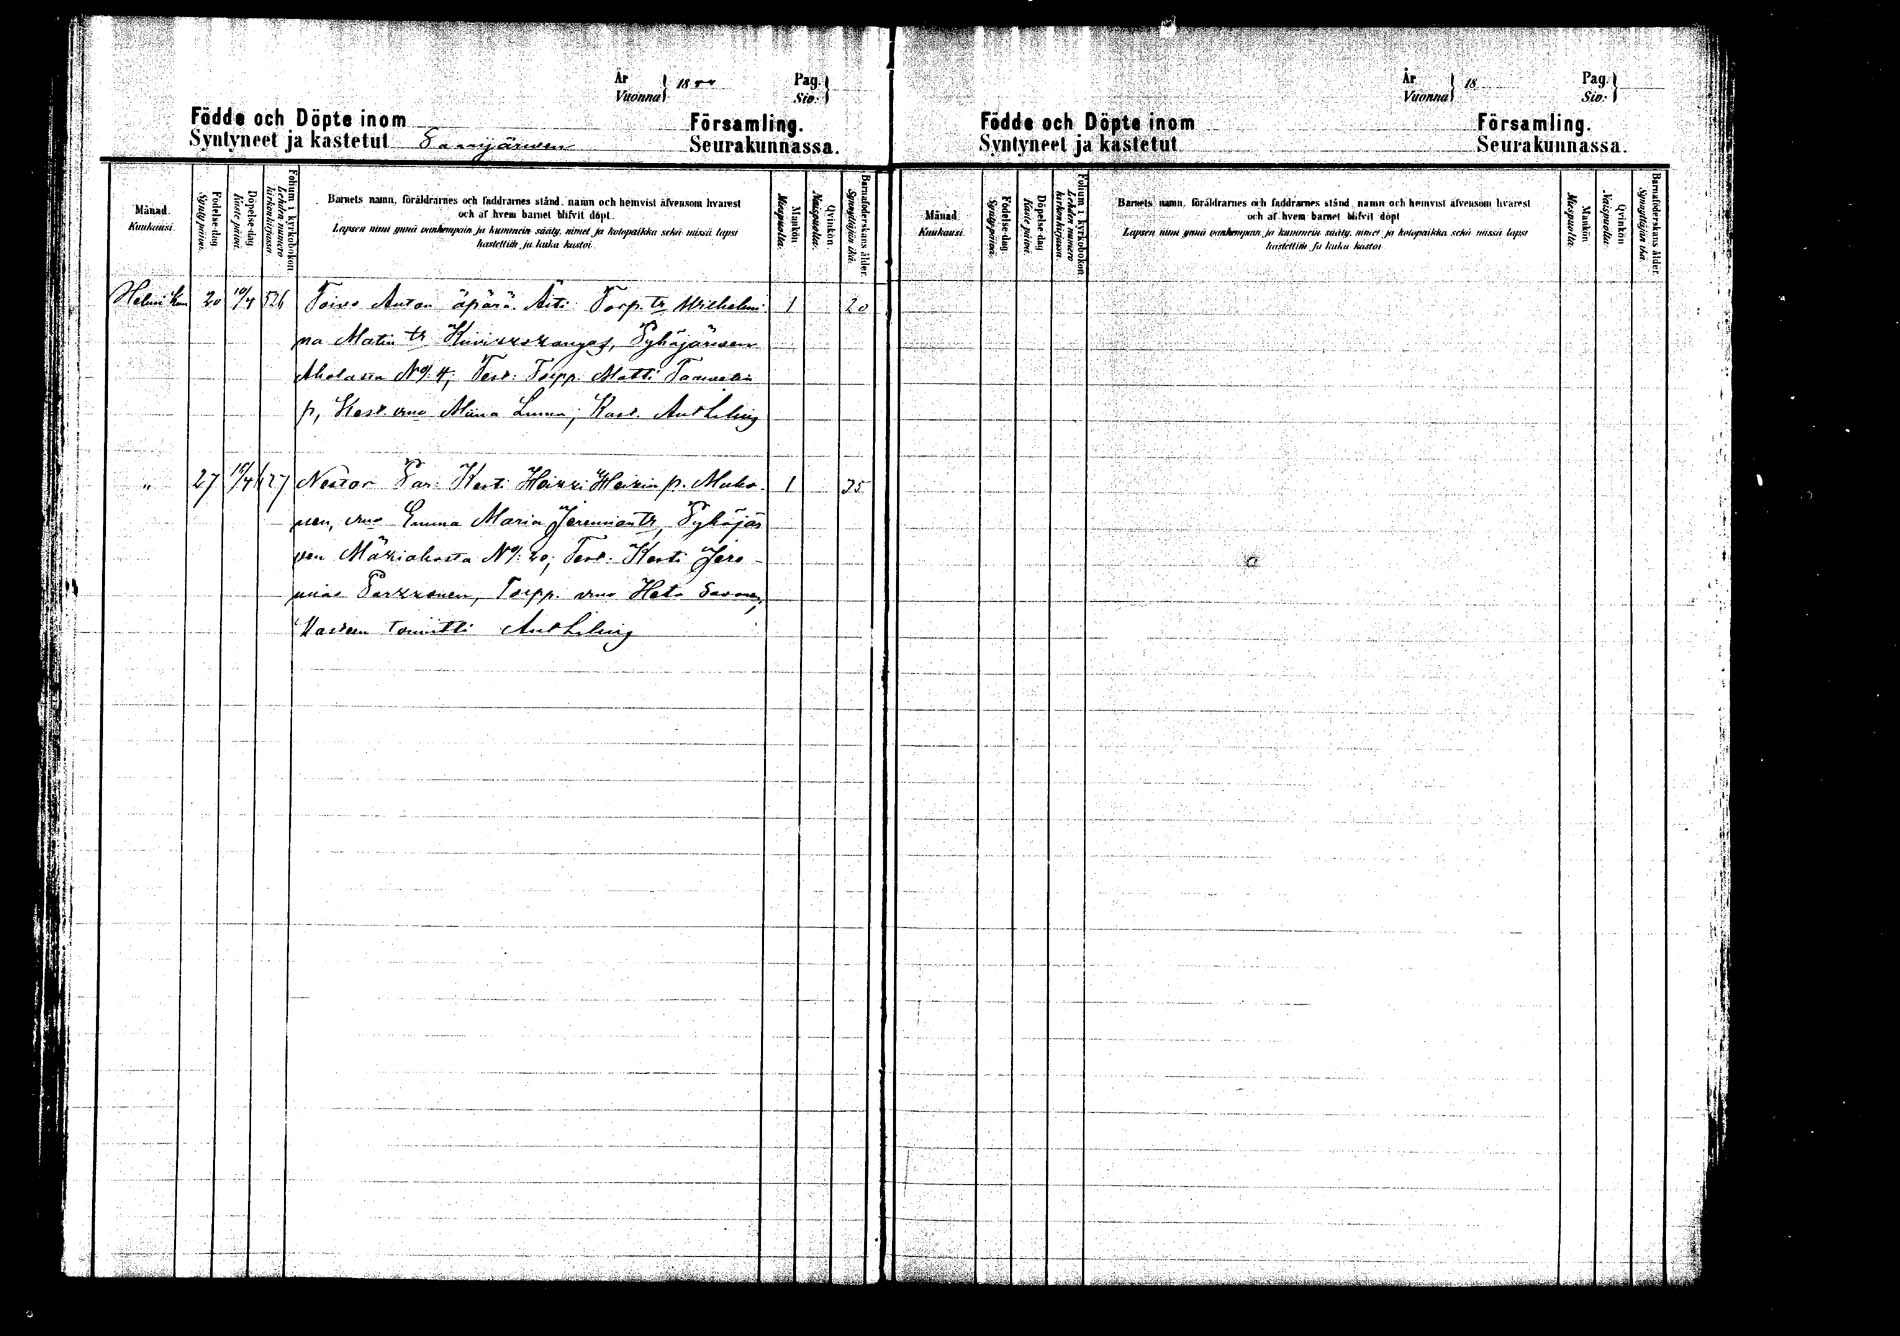 År Vuonna 18 Pag. Siv:
Födde och Döpte inom Församling.
Syntyneet ja kastetut Seurakunnassa.
Månad. Kuukausi.
Födelse-dag. Synty päivä.
Döpelse-dag Kaste päivä.
Folium i kyrkobokon Lehden numero kirkonkirjassa.
Barnets namn, föräldrarnes och faddrarnes stånd, namn och hemvist äfvensom hvarest
och af hvem barnet blifvit döpt.
Lapsen nimi ynnä vanhempain ja kummein sääty, nimet ja kotopaikka sekä missä lapsi
kastettiin ja kuka kastoi.
Mankön Miespuolta.
Qvinkön Naispuolta.
Barnaföderskans ålder. Synnyttäjän ikä.
Helmi kuu 20 10/4 526 Toivo Anton äpärä. Äiti: Torp. tr Wilhelmi-
na Matin tr Pyhäjärwen
Aholassa No: 4; Test: Torpp. Matti
p, Kest. vmo Miina Kast. Ant Leling
" 27 10/4 Nestor Var: Kesti Heikki Heikin p.
nen, vmo Emma Maria Jeremian tr, Pyhäjär
ven No: 20; Test: Kesti Jere-
mias Parkkonen, Torpp. vmo
Kasteen toimitti Ant Leling
1 20
1 35
År Vuonna 18 Pag. Siv:
Födde och Döpte inom Församling.
Syntyneet ja kastetut Seurakunnassa.
Månad. Kuukausi.
Födelse-dag. Synty päivä.
Döpelse-dag Kaste päivä.
Folium i kyrkobokon Lehden numero kirkonkirjassa.
Barnets namn, föräldrarnes och faddrarnes stånd, namn och hemvist äfvensom hvarest
och af hvem barnet blifvit döpt
Lapsen nimi ynnä vanhempain ja kummein sääty, nimet ja kotopaikka sekä missä lapsi
kastettiin ja kuka kastoi
Mankön Miespuolta.
Qvinkön Naispuolta.
Barnaföderskans ålder. Synnyttäjän ikä.